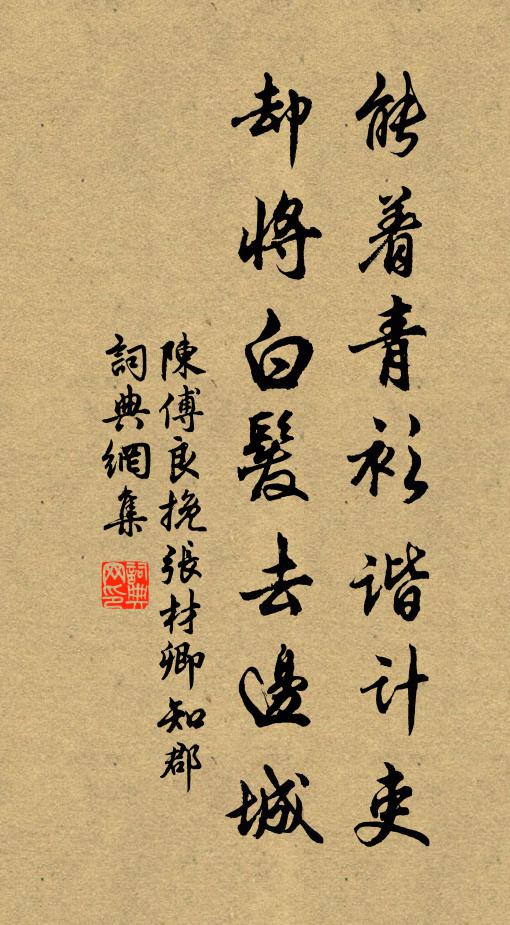 能着青衫谐计吏
却将白髮去邊城
陳傅良挽張材卿知郡
詞典網集
詞典网印